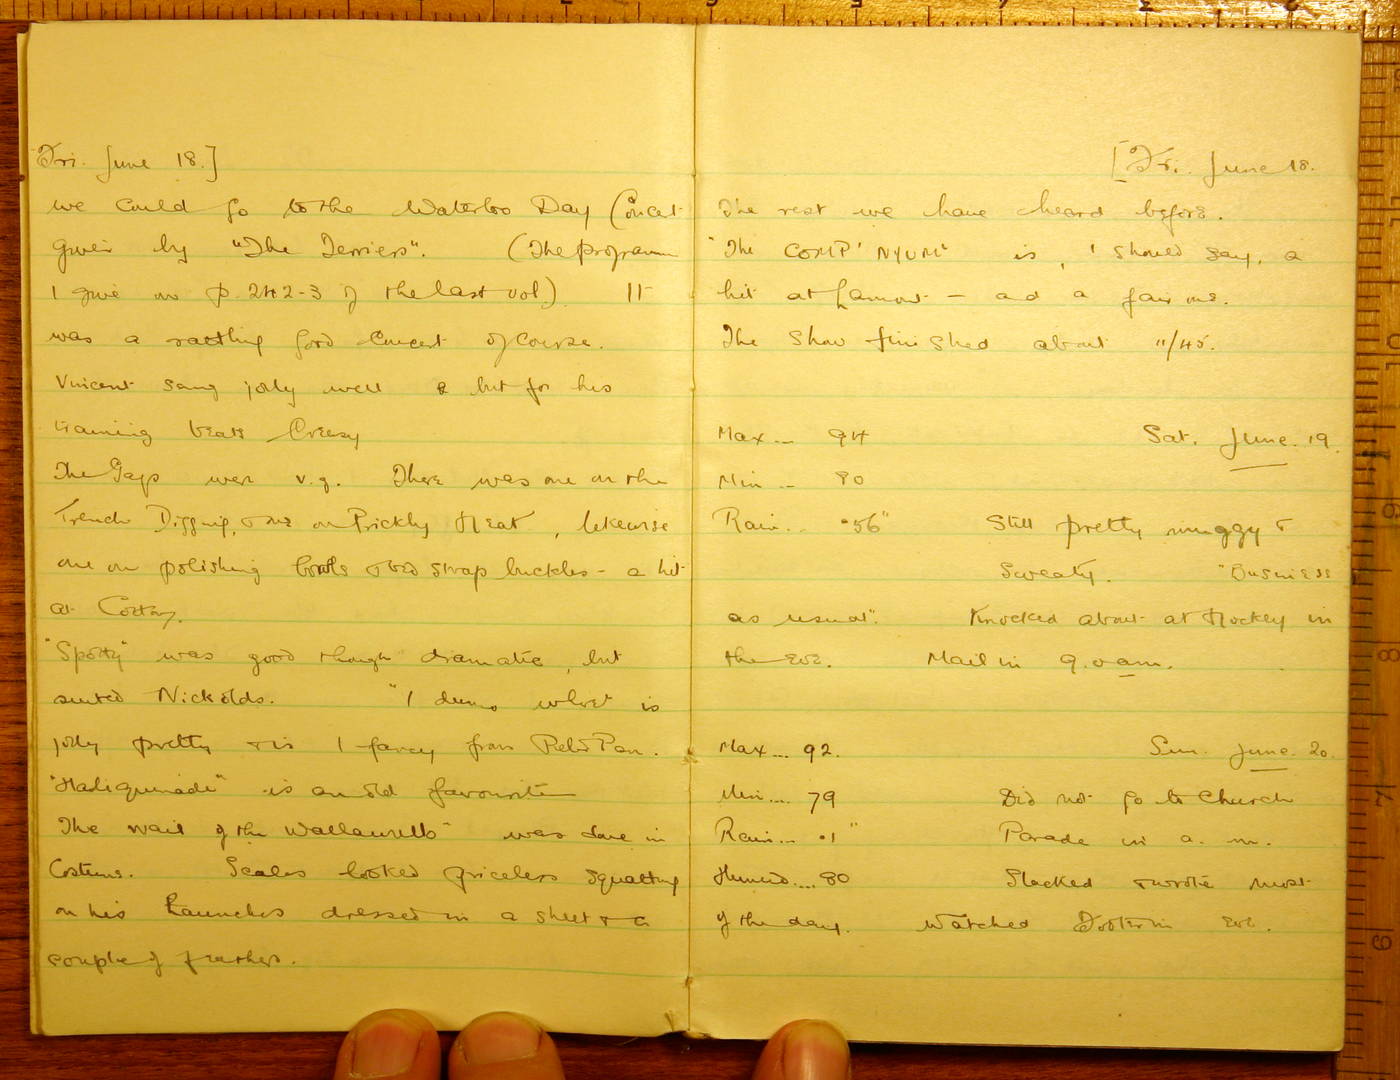 Fri. June 18.]
we could go to the Waterloo Day Concert
given by "The Terriers". (The programme
I give on p. 242-3 of the last vol) It
was a rattling good concert of course.
Vincent sang jolly well & but for his
training beats Creasy
The Gags were v.g. There was one on the
Trench Digging, & one on Prickly Heat, likewise
one on polishing boots & strap buckles - a hit
at
"Spotty" was good though dramatic, but
suited Nickolds. "I dunno where" is
jolly pretty & is I fancy from Peter Pan.
"Harliquinade" is an old favourite
The wail of the was done in
Costume. Scales looked priceless squatting
on his haunches dressed in a sheet & a
couple of feathers.
[Fri. June 18.
The rest we have heard before.
"The COMP'NYUM" is, I should say, a
hit at Lamont - and a fair one.
The Show finished about 11/45.
Max... 94 Sat. June. 19.
Min... 80
Rain... .56" Still pretty muggy &
Sweaty. "Business
as usual". Knocked about at Hockey in
the eve. Mail in 9.0 am.
Max... 92. Sun. June. 20.
Min.... 79 Did not go to Church
Rain... .1" Parade in a.m.
Humid.... 80 Slacked & wrote most
of the day. Watched Footer in eve.